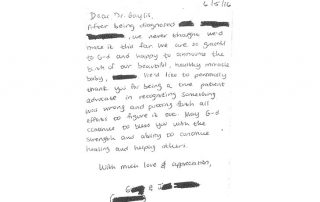 6/5/16
Dear Dr. Gaylis,
After being diagnosed
, we never thought we'd
make it this far. We are so grateful
to G-d and happy to announce the
birth of our beautiful, healthy miracle
baby, We'd like to personally
thank you for being a true patient
advocate in recognizing something
was wrong and putting forth all
efforts to figure it out. May G-d
continue to bless you with the
strength and ability to continue
healing and helping others.
With much love & appreciation,
G & J